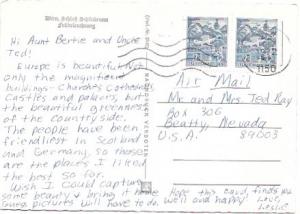 Wien, Schloß Schönbrunn
Hi Aunt Bertie and Uncle
Ted!
Europe is beautiful. Not
only the magnificent
buildings - Churches, Cathedrals
Castles and palaces, but
the beautiful greenness
of the country side.
The people have been
friendliest in Scotland
and Germany, so those
are the places I liked
the best so far.
Wish I could capture
some beauty & bring it home
pictures will have to do.
Hope this card finds you
well and happy
Love,
Leslie
1150
Air Mail
Mr. and Mrs. Ted Ray
Box 306
Beatty, Nevada
U.S.A. 89003